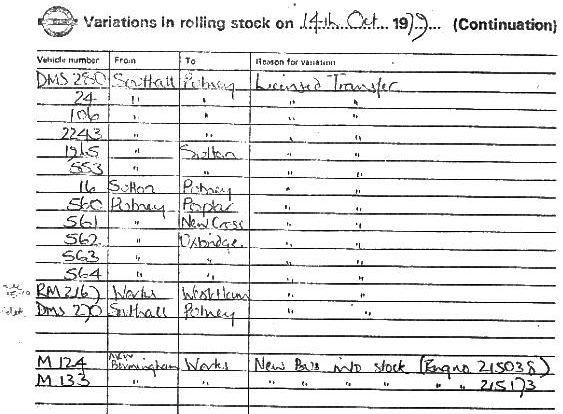 Variations in rolling stock on 14th Oct 1979 (Continuation)
Vehicle number From To Reason for variation
DMS 280 Southall Putney Licensed Transfer
24 " " " "
106 " " " "
2243 " " " "
1965 " Sutton " "
553 " " " "
16 Sutton Putney " "
560 Putney Poplar " "
561 " New Cross " "
562 " Uxbridge " "
563 " " " "
564 " " " "
RM 2167 Works West Ham " "
DMS 270 Southall Putney " "
M 124 New Birmingham Works New Bus into stock (Eng no 215038)
M 133 " " " " " " " 215173